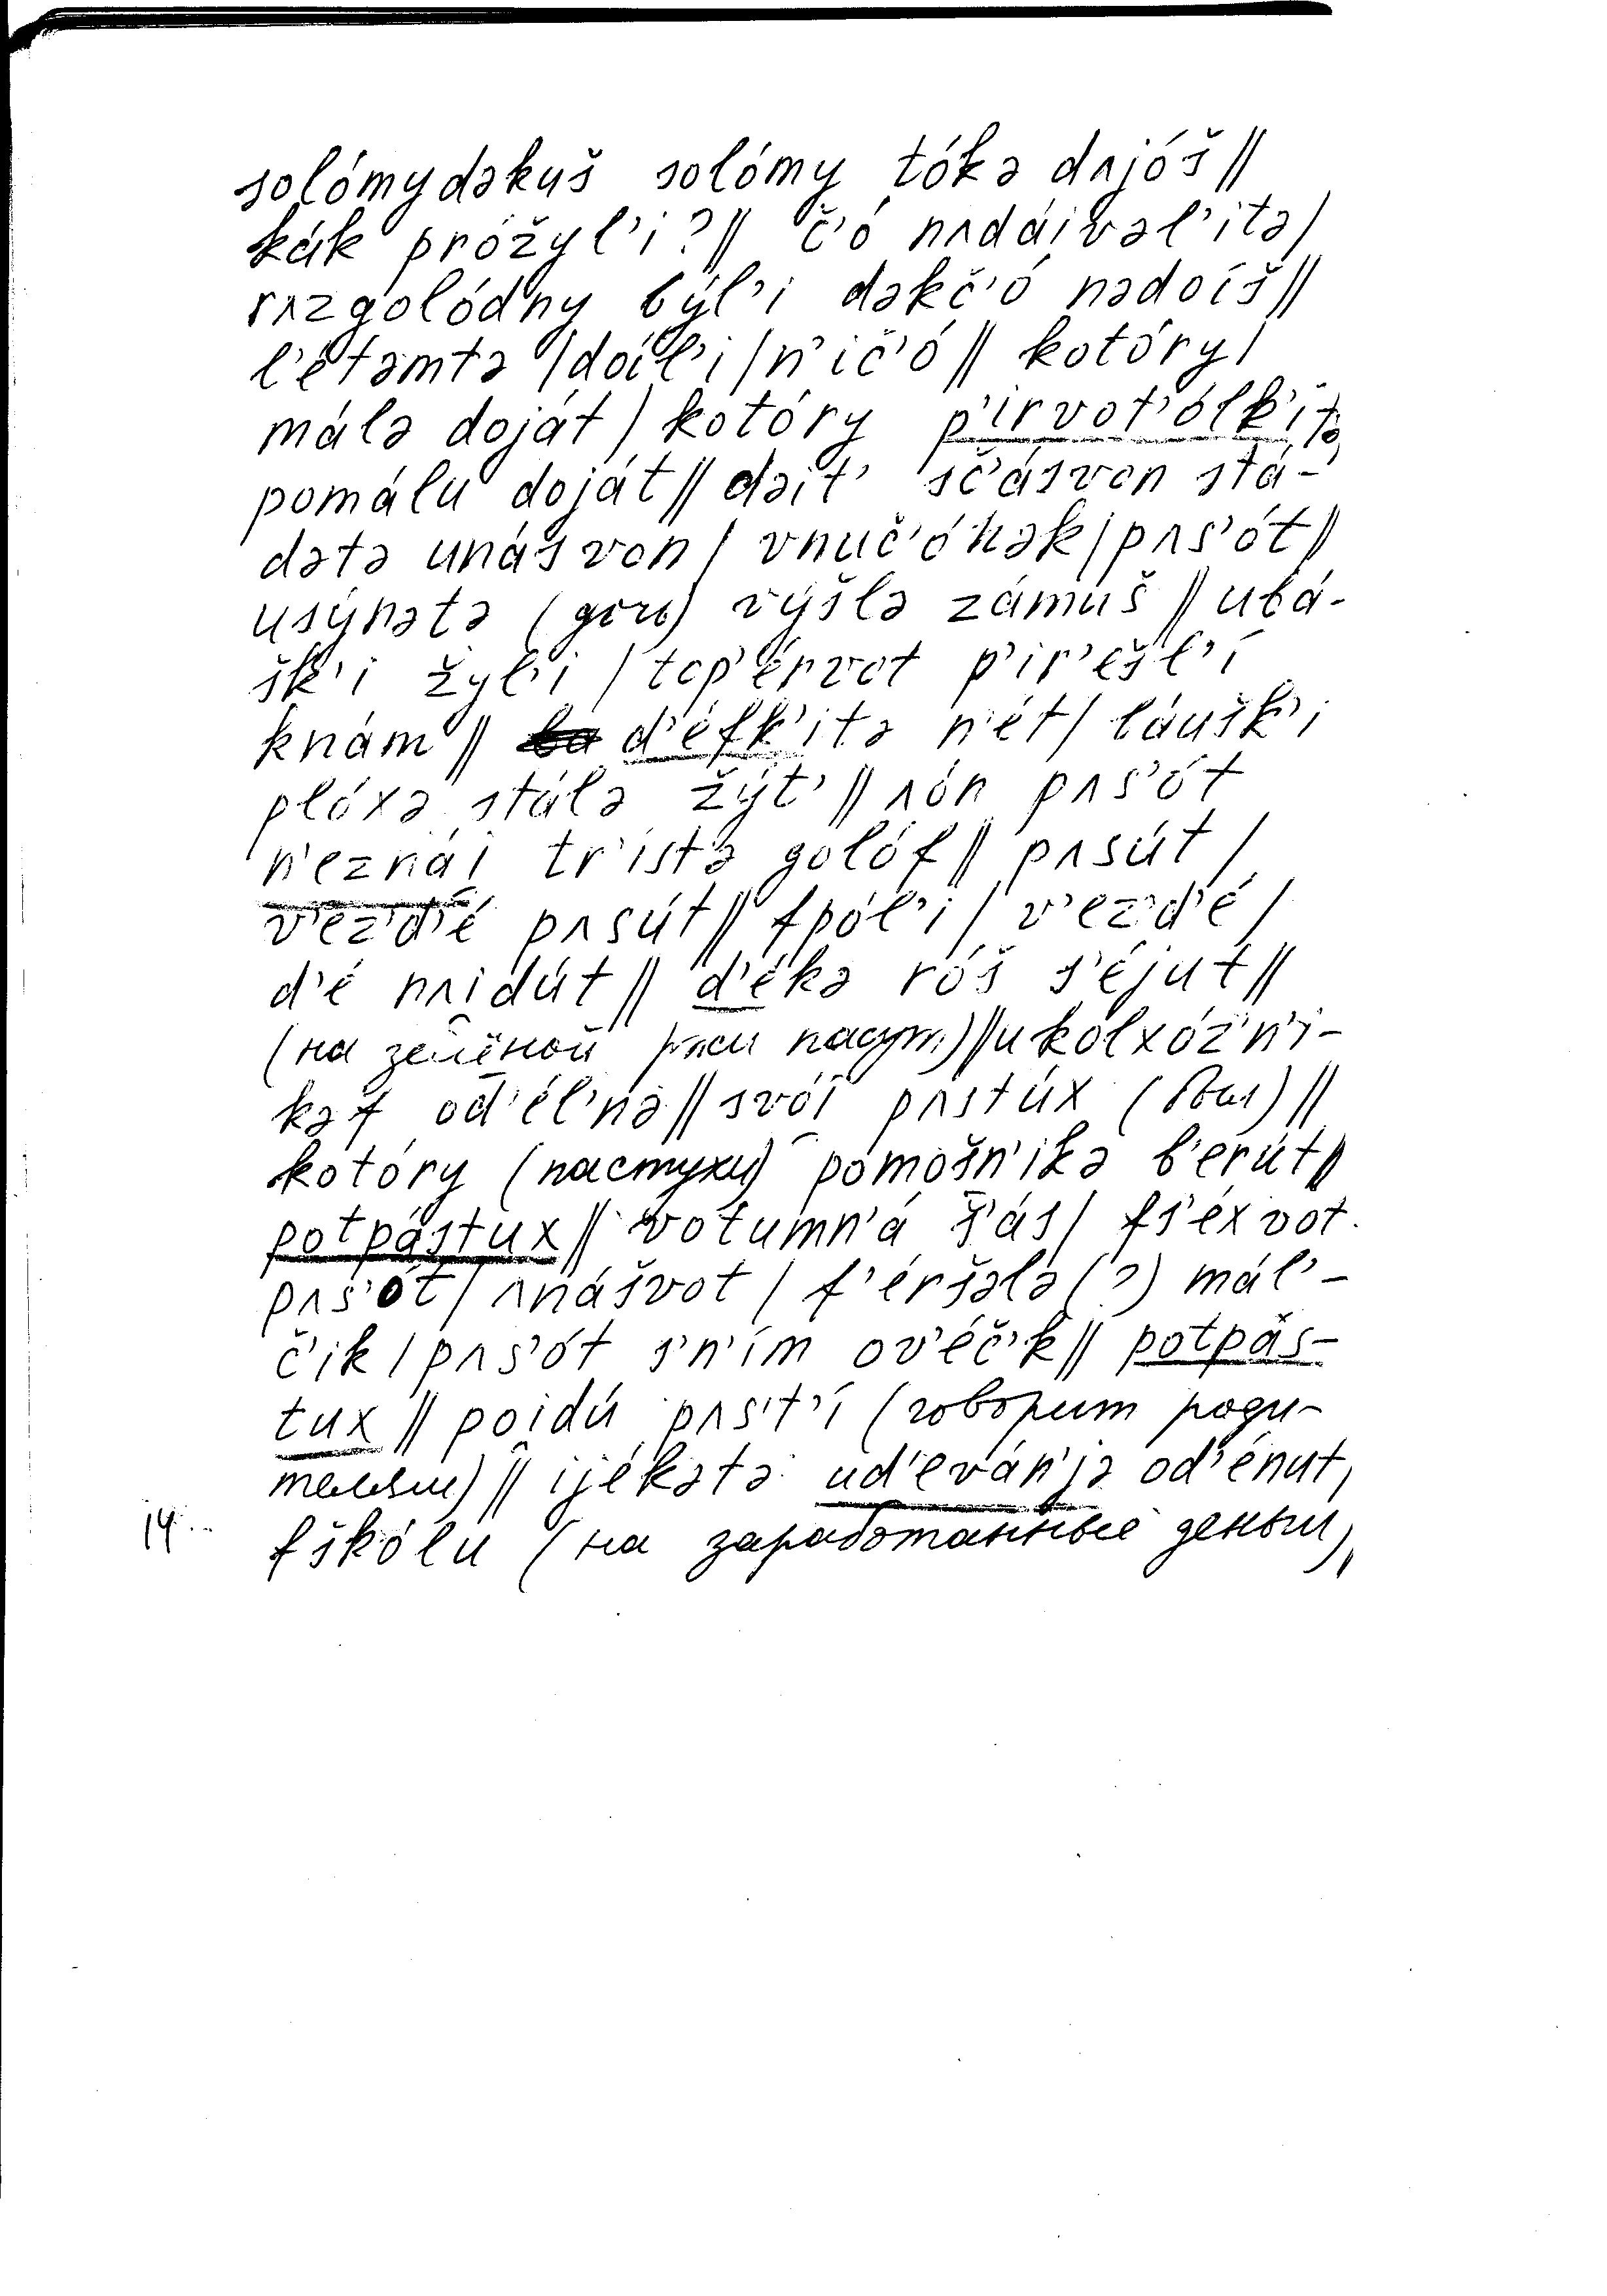 solómydəkuš solómy tókə dʌjóš //
kák próžyl'i? // č'ó nʌdáivəl'itə /
rʌzgolódny býl'i dəkč'ó nədoíš //
l'étəmtə / doíl'i / n'ič'ó // kotóry /
málə doját / kotóry p'irvot'ólk'itə
pomálu doját // dəit' sč'ásvon stá-
dətə unásvon / vnuč'ónək / pʌs'ót //
usýnətə () výšlə zámuš // ubá-
šk'i žyl'i / top'érvot p'ir'ešl'í
knám // d'éfk'itə n'ét / báušk'i
plóxə stálə žýt' // ʌón pʌs'ót
n'eznái tr'ístə golóf // pʌsút /
v'ez'd'é pʌsút // fpól'i / v'ez'd'é /
d'é nʌidút // d'ékə róš s'éjut //
(на зелёной ржи пасут) // ukolxóz'n'i-
kəf od'él'nə // svói pʌstúx (был) //
kotóry (пастухи) pomóšn'ikə b'erút //
potpástux // votumn'á š'ás / fs'éx vot
pʌs'ót / ʌnášvot / f'éršələ (?) mál'-
č'ik / pʌs'ót s'n'ím ov'éč'k // potpás-
tux // poidú pʌs't'í (говорит роди-
телям) // ijékətə ud'eván'jə od'énut,
14 fškólu (на заработанные деньги),